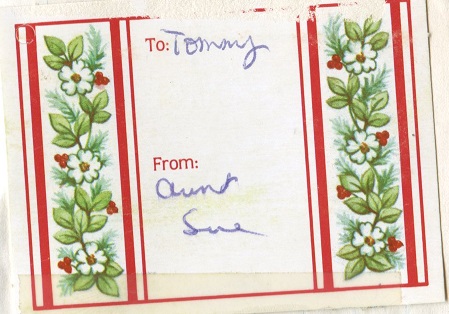 To: Tommy
From:
Aunt
Sue